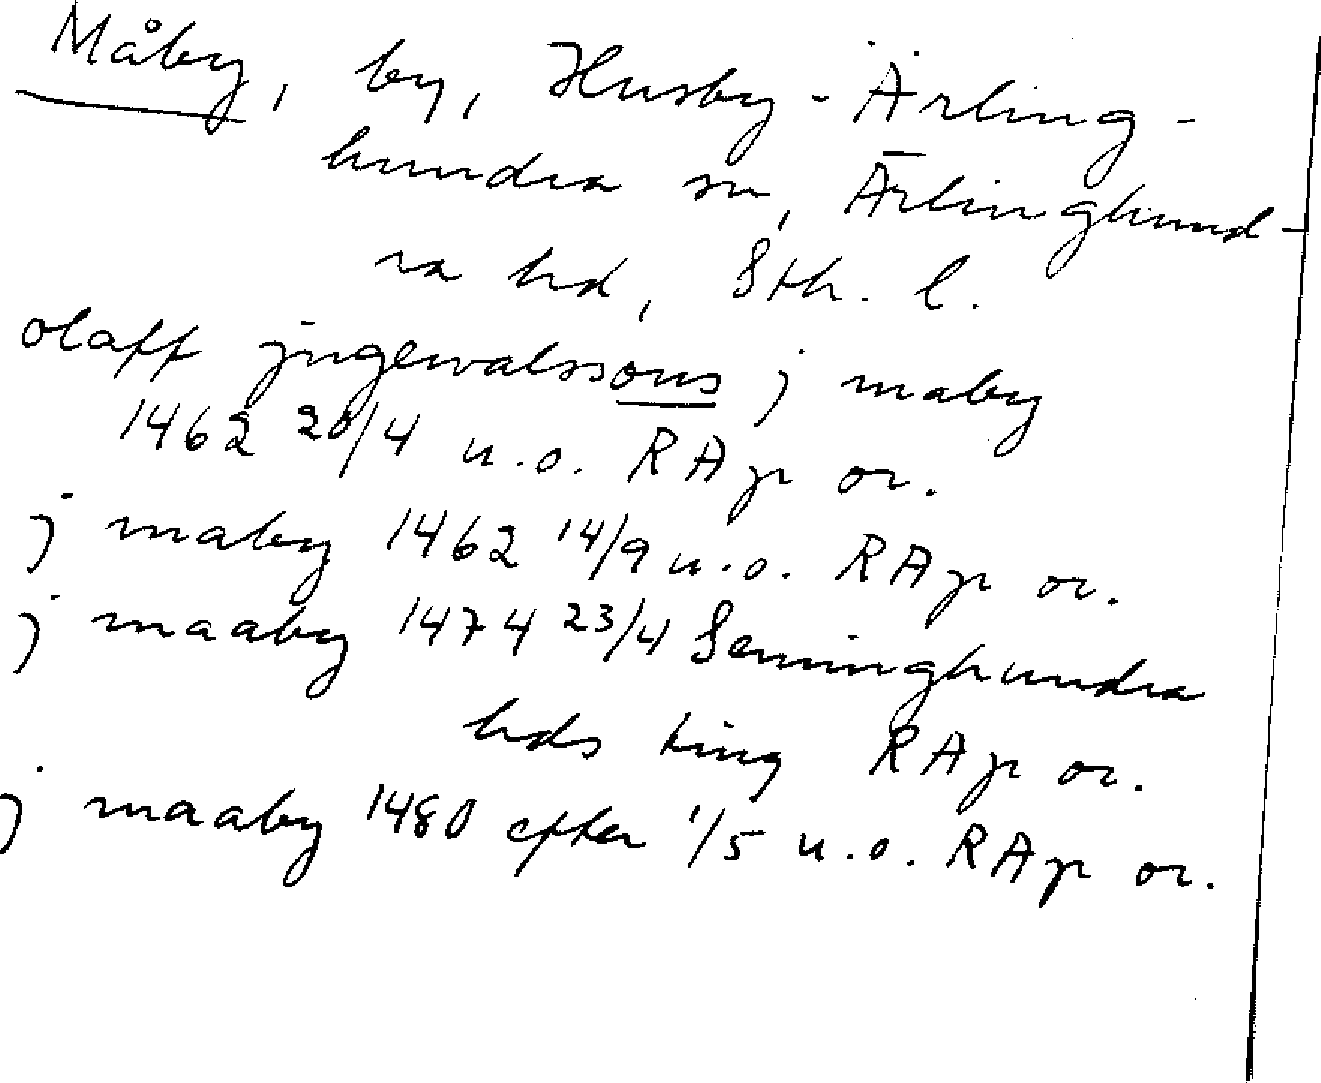 Måby, by, Husby-Ärling-
hundra sn, Ärlinghund-
ra hd, Sth. l.
olaff jngewalssons j maby
1462 20/4 u.o. RAp or.
j maby 1462 14/9 u.o. RAp or.
j maaby 1474 23/4 Seminghundra
hds ting RAp or.
j maaby 1480 efter 1/5 u.o. RAp or.